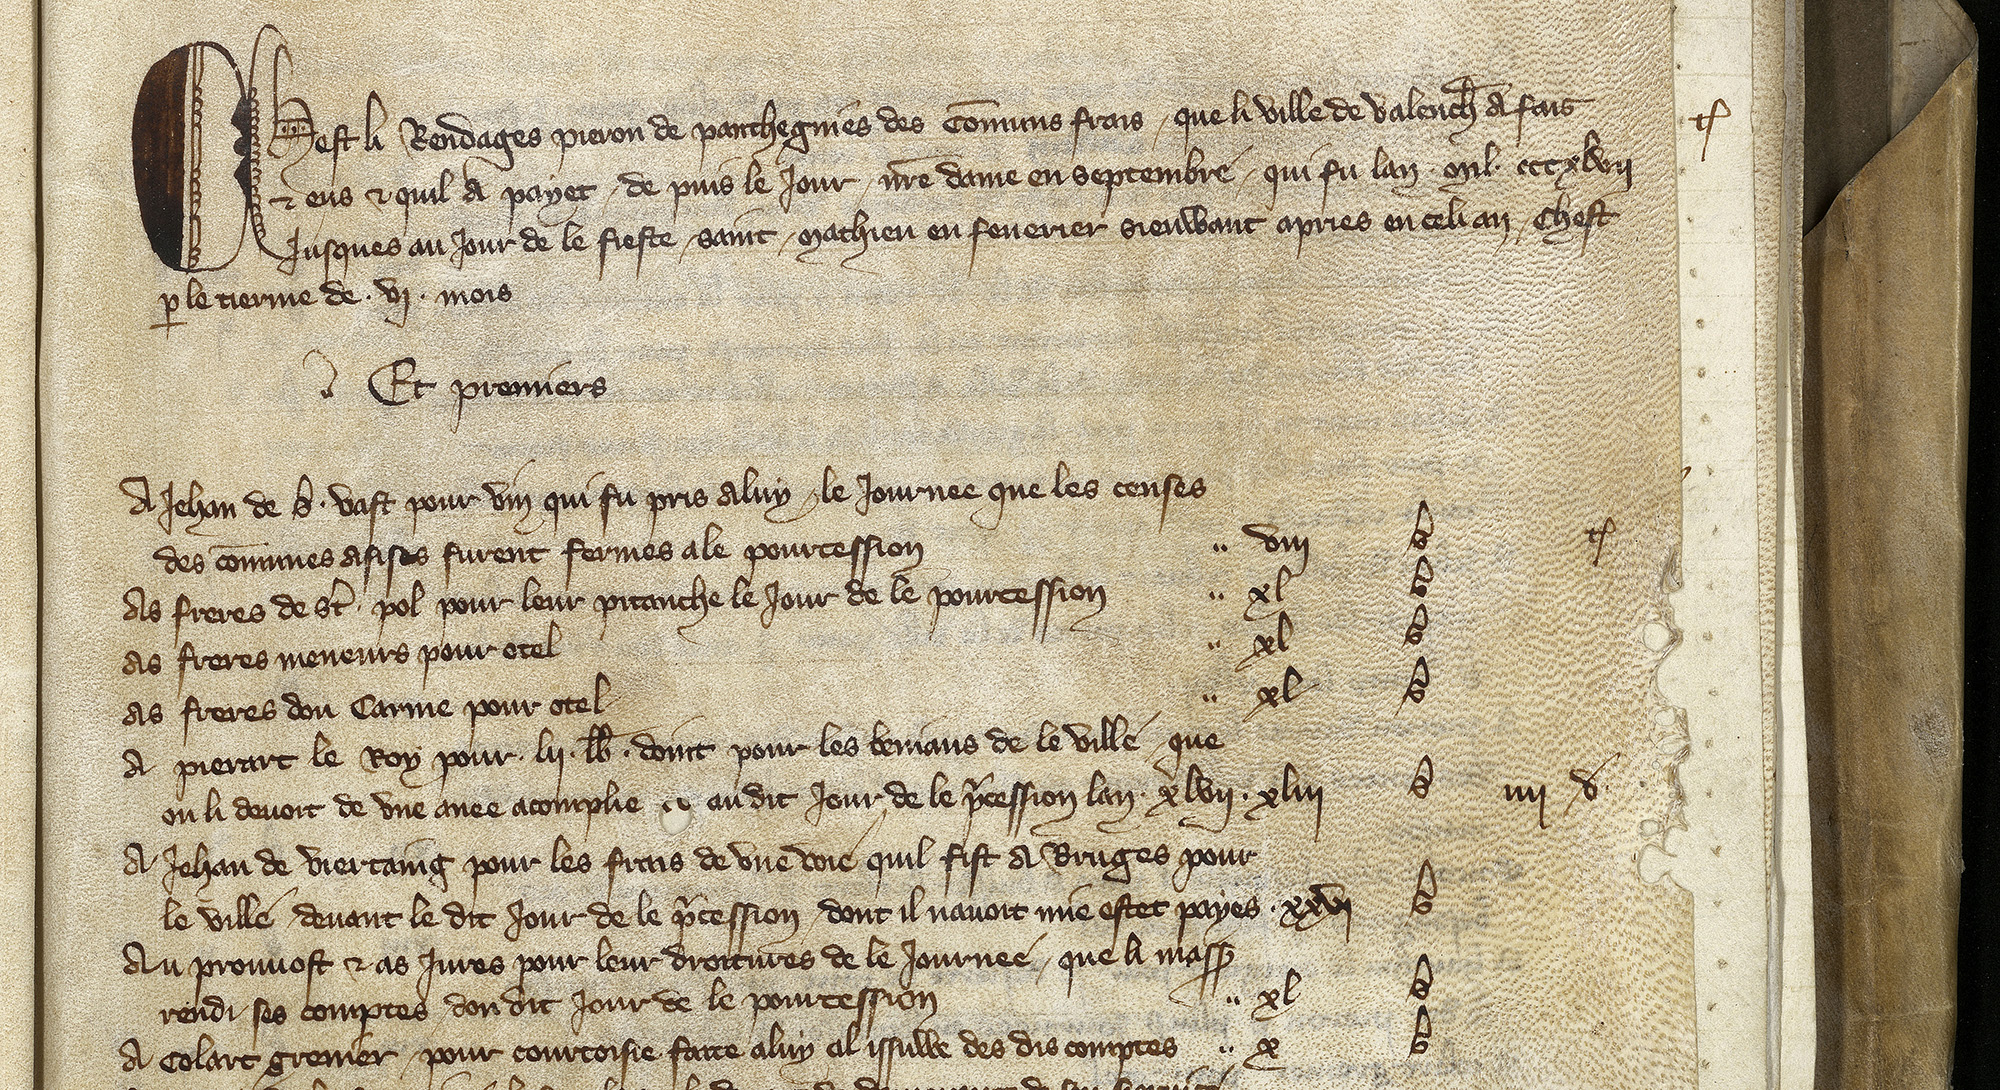 Chest li Rendages pieron de parthegnies des Com̄uns frais / que li ville de valench̄ A fais
⁊ eus ⁊ quil A payet / de puis le Jour / nr̄e dame en septembre / qui fu lan · mil · cccxlvij
Jusques au Jour de le fieste / saint / mathieu en fourier sieuwant apries en celi an / Chest
ꝑ le tierme de · vj · mois
Et premiers
A Jehan de s̄ · vast pour vin qui fu pris a luy / le Journee que les censes
des com̄unes asises furent fermes a le pourcession .. viij s
As freres de st̄ · pol pour leur pitanche le Jour de le pourcession .. xl s
As freres meneurs pour otel .. xl s
As freres dou Carme pour otel .. xl s
A pierart le Roy pour · lij · lb̄ · doint pour les de le ville / que
on li devoit de vne anee acomplie au dit Jour de le p̄cession lan · xlvij · xliij s iiij d
A Jehan de viertaing pour les frais de vne voie quil fist A Bruges pour
le ville / devant le dit Jour de le p̄cession / dont il navoit mie estet payes · xxvj s
Au prouvost ⁊ as Jures pour leur droitures de le Journee / que li mass̄
rendi ses comptes / dou dit Jour de le pourcession .. xl s
A Colart grenier / pour courtoisie faite a luy al issuwe des dis comptes .. x s